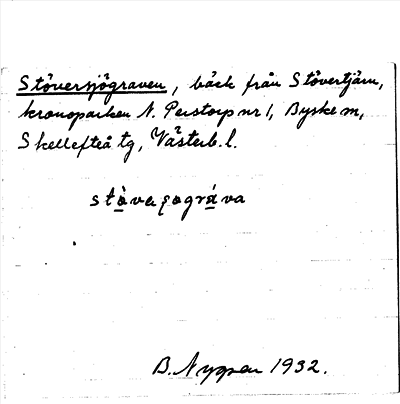 Stöversjögraven, bäck från Stövertjärn,
kronoparken N. Perstorp nr 1, Byske sn,
Skellefteå tg, Västerb. l.
stö̀vaʂográ̱va
B. Nygren 1932.